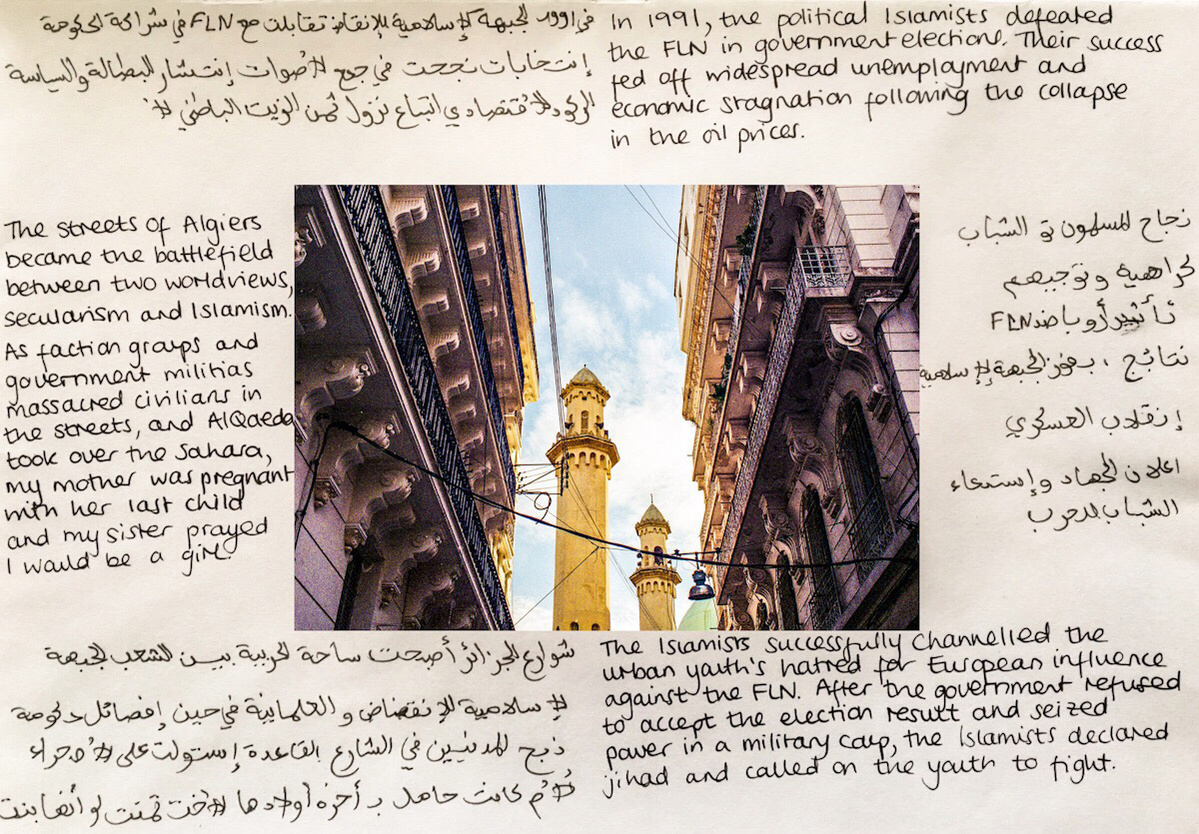 في الجبهة الإسلامية للإنقاذ تقابلت مع FLN في شراكة الحكومة
إنتخابات نجحت في جمع الأصوات إنتشار البطالة والسياسة
الركود الأقتصادي اتباع نزول ثمن الزيت الباطني
In 1991, the political Islamists defeated
the FLN in government elections. Their success
fed off widespread unemployment and
economic stagnation following the collapse
in the oil prices.
The streets of Algiers
became the battlefield
between two worldviews,
secularism and Islamism.
As faction groups and
government militias
massacred civilians in
the streets, and AlQaeda
took over the Sahara,
my mother was pregnant
with her last child
and my sister prayed
I would be a girl
نجاح المسلمون الشباب
كراهية وتوجيههم
تأثير أوروبا ضد FLN
نتائج ، بفوز الجبهة الإسلامية
إنقلاب العسكري
اعلان الجهاد وإستدعاء
الشباب للحرب
شوارع الجزائر أصبحت ساحة الحربية بين الشعب الجبهة
الإسلامية للإنقضاض و العلمانية في حين حكومة
ذبح المدنيين في الشارع القاعدة إستولت على الصحراء
الأم كانت حامل بأخره أولادها الأخت تمنت لو أنها بنت
The Islamists successfully channelled the
urban youth's hatred for European influence
against the FLN. After the government refused
to accept the election result and seized
power in a military coup, the Islamists declared
jihad and called on the youth to fight.